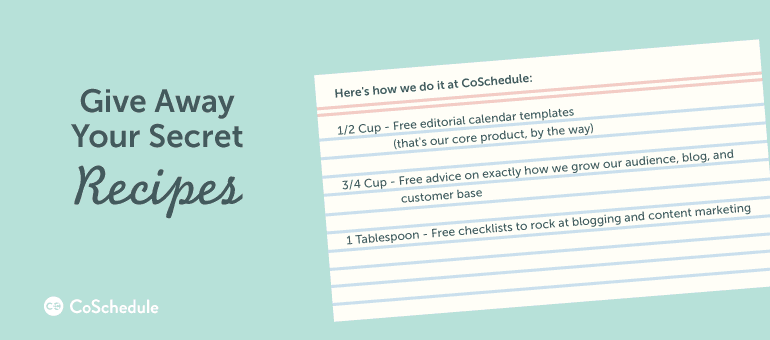 Give Away
Your Secret
Recipes
Here's how we do it at CoSchedule:
1/2 Cup - Free editorial calendar templates
(that's our core product, by the way)
3/4 Cup - Free advice on exactly how we grow our audience, blog, and
customer base
1 Tablespoon - Free checklists to rock at blogging and content marketing
CoSchedule